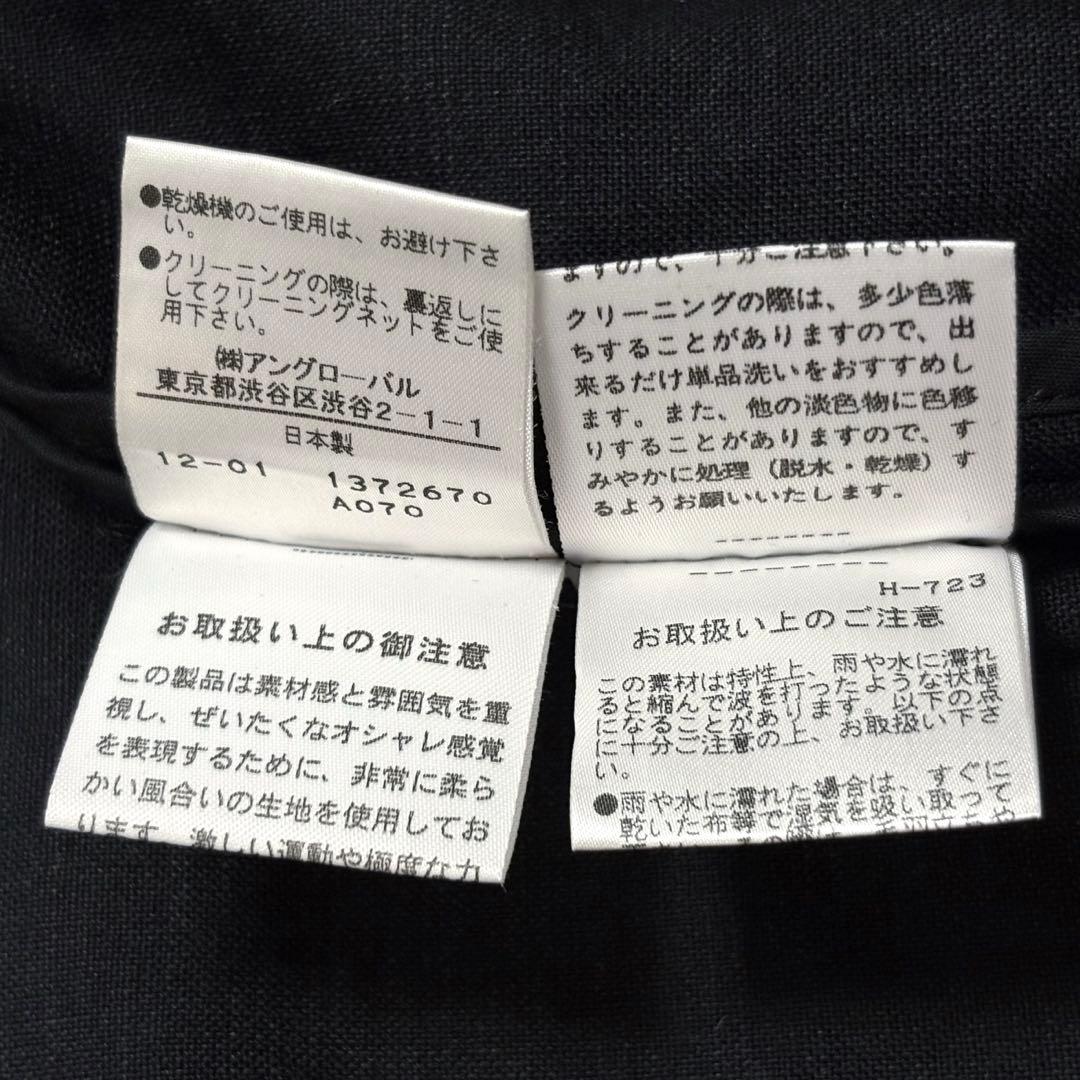 ●乾燥機のご使用は、お避け下さ
い。
●クリーニングの際は、裏返しに
してクリーニングネットをご使
用下さい。
㈱アングローバル
東京都渋谷区渋谷2-1-1
日本製
12-01 1372670
A070
ますので、十分ご注意下さい。
クリーニングの際は、多少色落
ちすることがありますので、出
来るだけ単品洗いをおすすめし
ます。また、他の淡色物に色移
りすることがありますので、す
みやかに処理（脱水・乾燥）す
るようお願いいたします。
お取扱い上の御注意
この製品は素材感と雰囲気を重
視し、ぜいたくなオシャレ感覚
を表現するために、非常に柔ら
かい風合いの生地を使用してお
ります。激しい運動や極度な力
H-723
お取扱い上のご注意
この素材は特性上、雨や水に濡れ
ると縮んで波を打ったような状態
になることがあります。以下の点
に十分ご注意の上、お取扱い下さ
い。
●雨や水に濡れた場合は、すぐに
乾いた布等で湿気を吸い取って